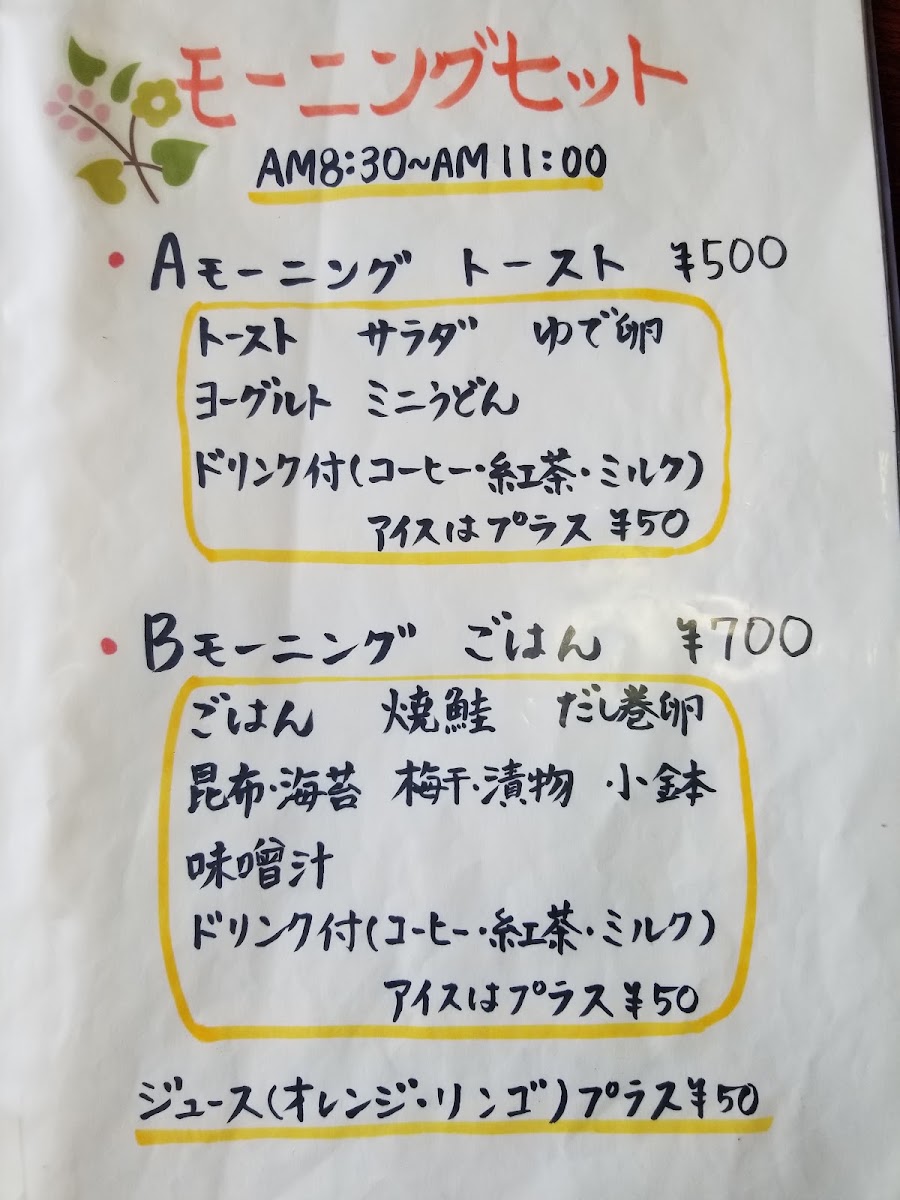 モーニングセット
AM8:30~AM11:00
・Aモーニング トースト ¥500
トースト サラダ ゆで卵
ヨーグルト ミニうどん
ドリンク付(コーヒー・紅茶・ミルク)
アイスはプラス ¥50
・Bモーニング ごはん ¥700
ごはん 焼鮭 だし巻卵
昆布・海苔 梅干・漬物 小鉢
味噌汁
ドリンク付(コーヒー・紅茶・ミルク)
アイスはプラス¥50
ジュース(オレンジ・リンゴ)プラス¥50